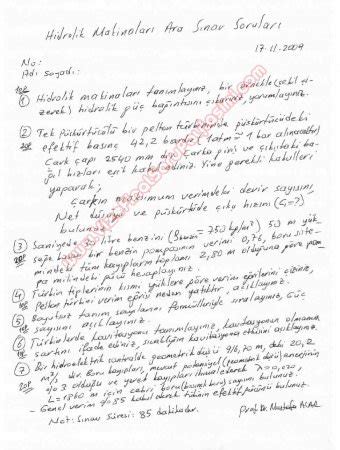 Hidrolik Makinaları Ara Sınav Soruları
17-11-2009
No:
Adı soyadı:
10p
1 Hidrolik makinaları tanımlayınız, bir örnekle (şekil çi-
zerek) hidrolik güç bağıntısını çıkarınız, yorumlayınız.
2 Tek püskürtücülü bir pelton türbininde püskürtücüdeki
20p efektif basınç 42,2 bardır (1atm = 1 bar alınacaktır)
Çark çapı 2540 mm dir. Çarka giriş ve çıkıştaki ba-
ğıl hızları eşit kabul ediniz. Yine gerekli kabulleri
yaparak;
Çarkın maksimum verimdeki devir sayısını
Net düşüyü ve püskürtüde çıkış hızını
bulunuz
3 Saniyede litre benzini 750 kg/m³) 50 m yük-
10p bir benzin pompasının verimi 0,76, boru siste-
mindeki tüm kayıpların toplamı 2,80 m olduğuna göre pom-
pa milindeki gücü hesaplayınız.
4 Türbin tiplerinin kısmi yüklere göre verim eğrilerini çiziniz,
10p Pelton türbini verim eğrisi neden yatıktır, açıklayınız.
5 Boyutsuz tanım sayılarını formülleriyle sıralayınız, Güç
10p sayısını açıklayınız.
6 Türbinlerde kavitasyonu tanımlayınız, kavitasyonun olmama
şartını ifade ediniz, sıcaklığın kavitasyona etkisini açıklayınız.
7 Bir hidroelektrik santralde geometrik düşü 70 m, debi 20,2
20p m³/s dir. Boru kayıpları, mevcut potansiyel (geometrik düşü) enerjinin
%3 olduğu ve yerel kayıpları ihmal ederek λ=0,020,
L=1860 m için cebri boru çapını bulunuz.
- Genel verim %85 kabul ederek türbin efektif gücünü bulunuz.
Not: Sınav Süresi: 85 dakikadır.
Prof. Dr. Mustafa